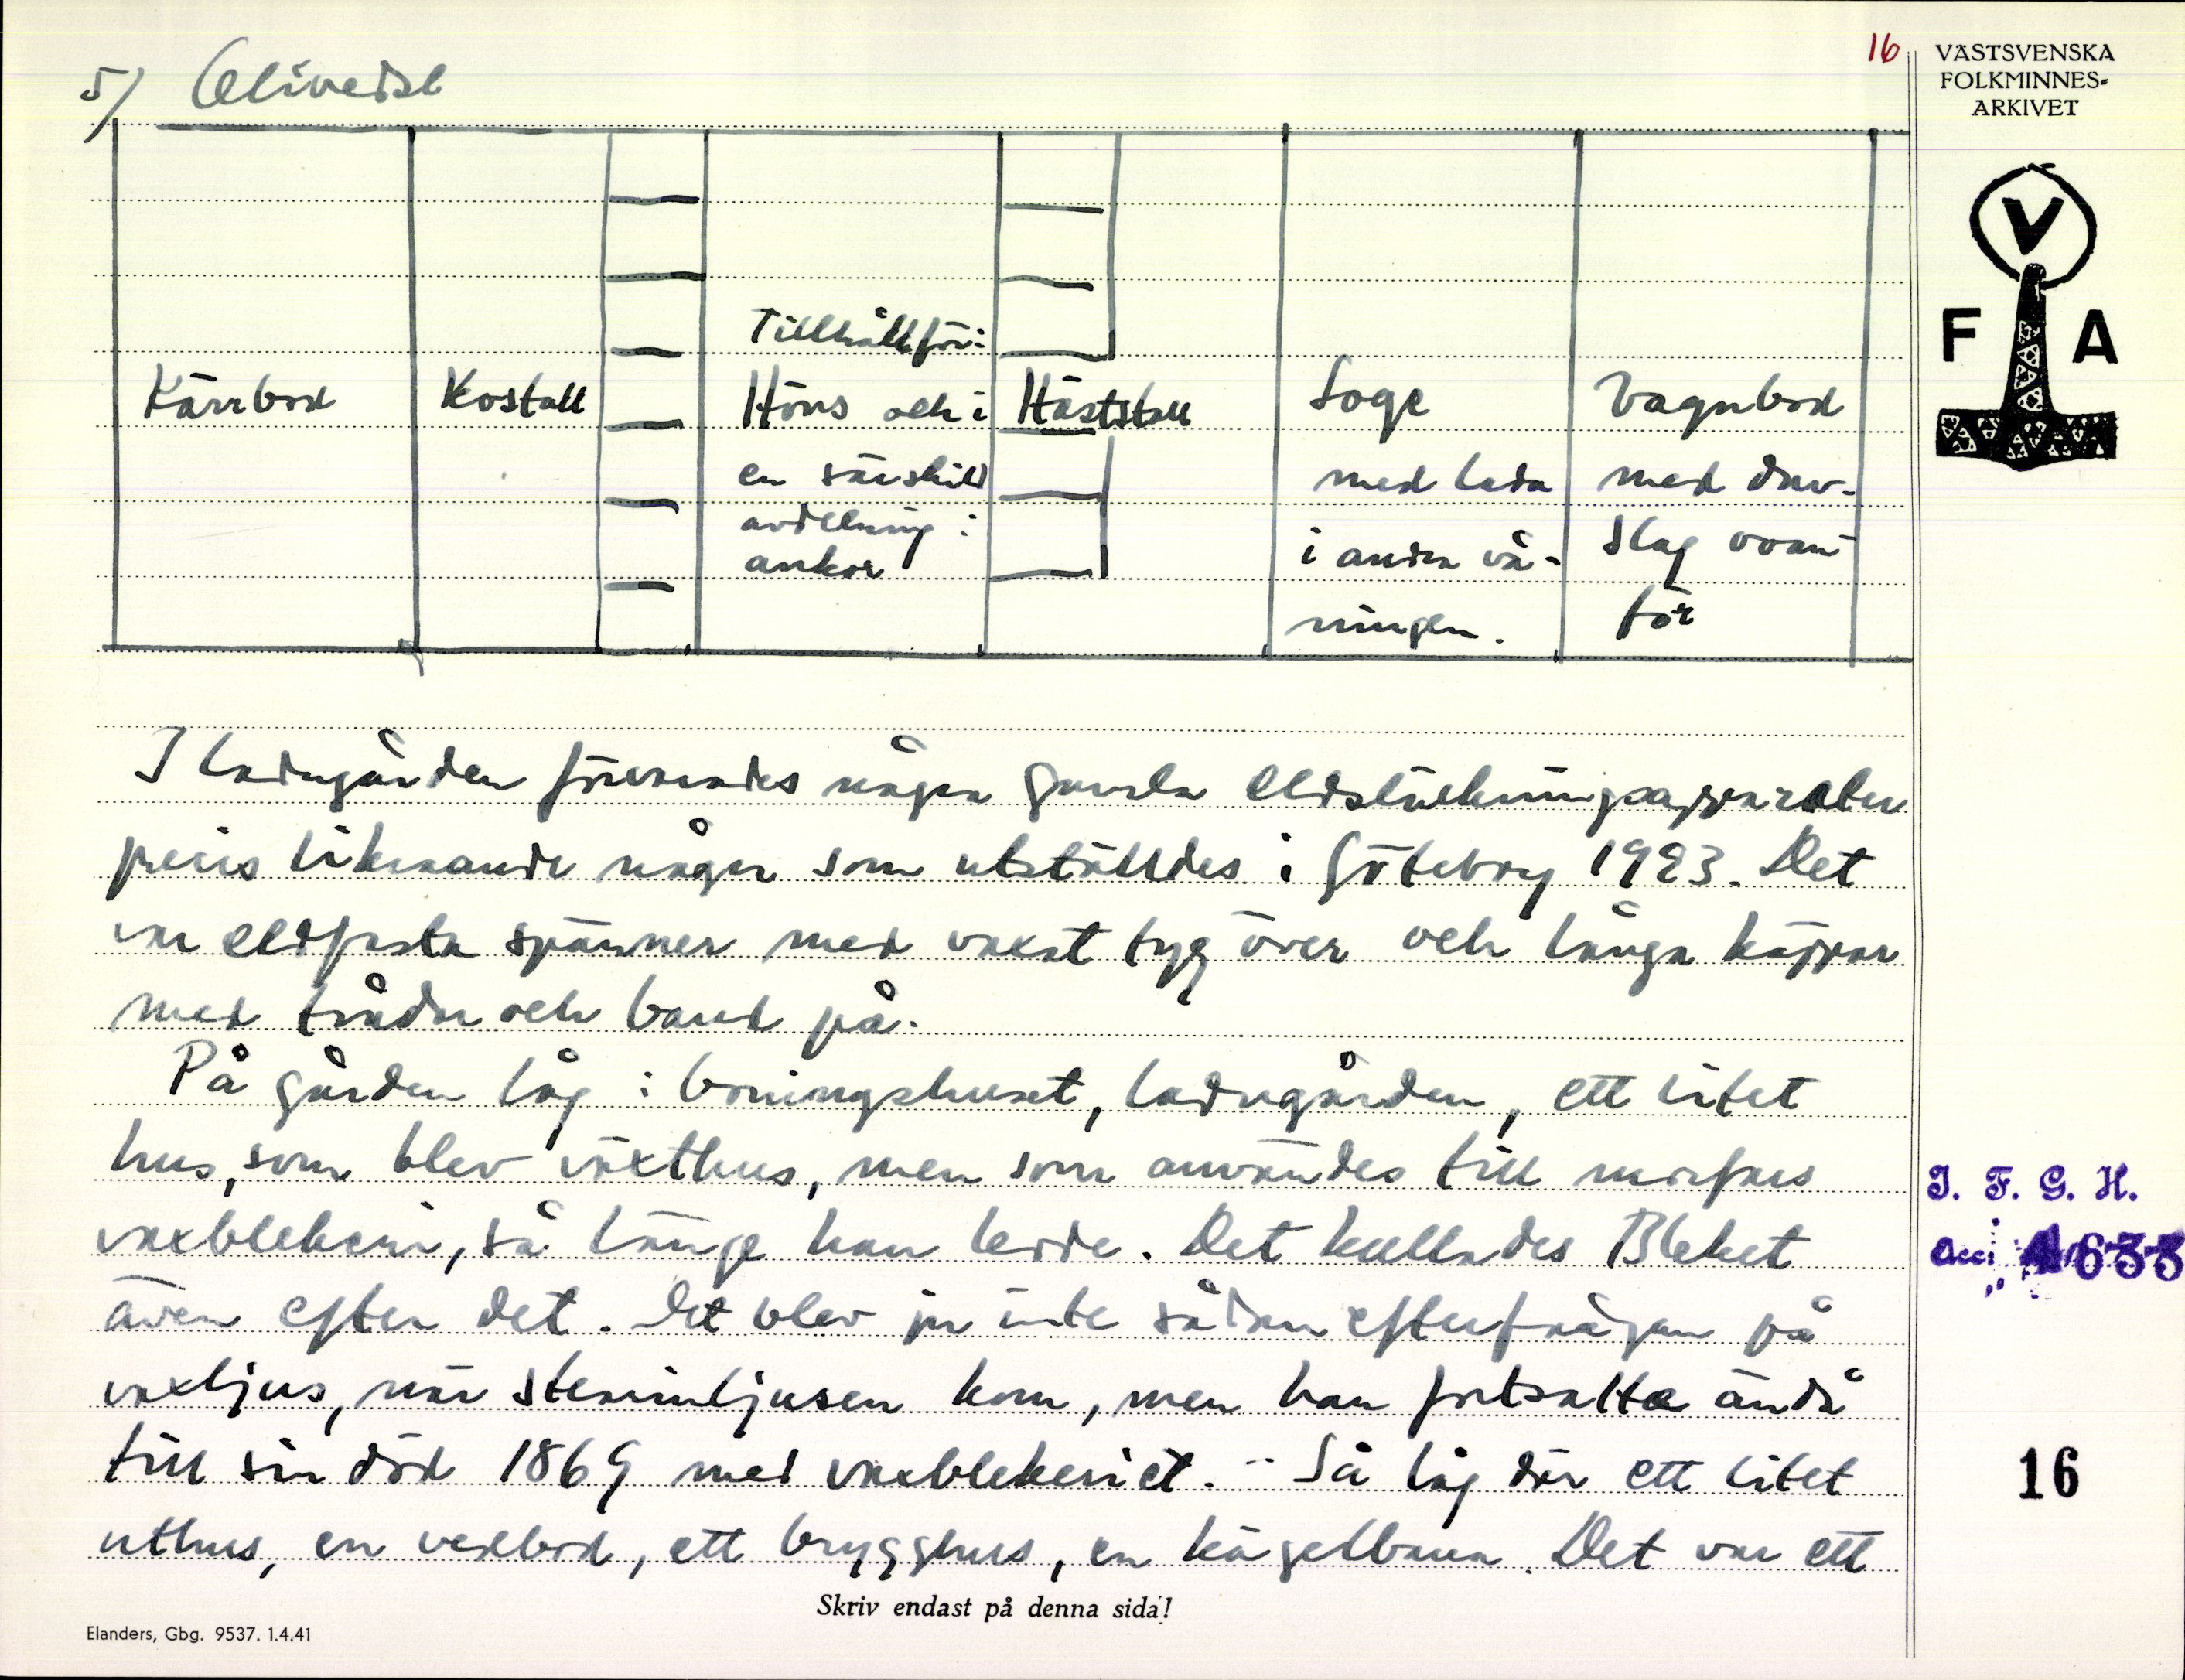 5/ Olivedal
16
VÄSTSVENSKA
FOLKMINNES-
ARKIVET
V
F A
Kärrbod
Kostall
Tillhåll för:
Höns och i
en särskild
avdelning:
ankor
Häststall
Loge
med lada
i andra vå-
ningen.
Vagnbod
med duv-
slag ovan-
för
I ladugården förvarades några gamla eldsläckningsapparater
precis liknande några som utställdes i Göteborg 1923. Det
var eldfasta spänner med vaxat tyg över och långa käppar
med trådar och band på.
På gården låg: boningshuset, ladugården, ett litet
hus, som blev växthus, men som användes till morfars
vaxblekeri, så länge han levde. Det kallades Bleket
även efter det. Det blev ju inte sådan efterfrågan på
vaxljus, när stearinljusen kom, men han fortsatte ändå
till sin död 1869 med vaxblekeriet. - Så låg där ett litet
uthus, en vedbod, ett brygghus, en kägelbana. Det var ett
I. F. G. H.
Acc. 4633
16
Skriv endast på denna sida!
Elanders, Gbg. 9537. 1.4.41